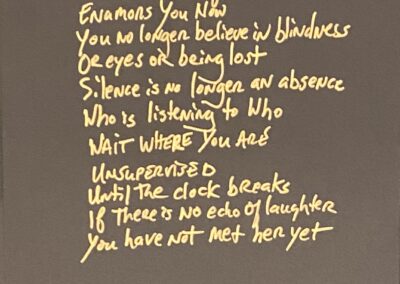 ENAMORS YOU NOW
You no longer believe in blindness
Or eyes or being lost
Silence is no longer an absence
Who is listening to Who
WAIT WHERE YOU ARE
UNSUPERVISED
Until The clock breaks
If There is no echo of laughter
You have not met her yet